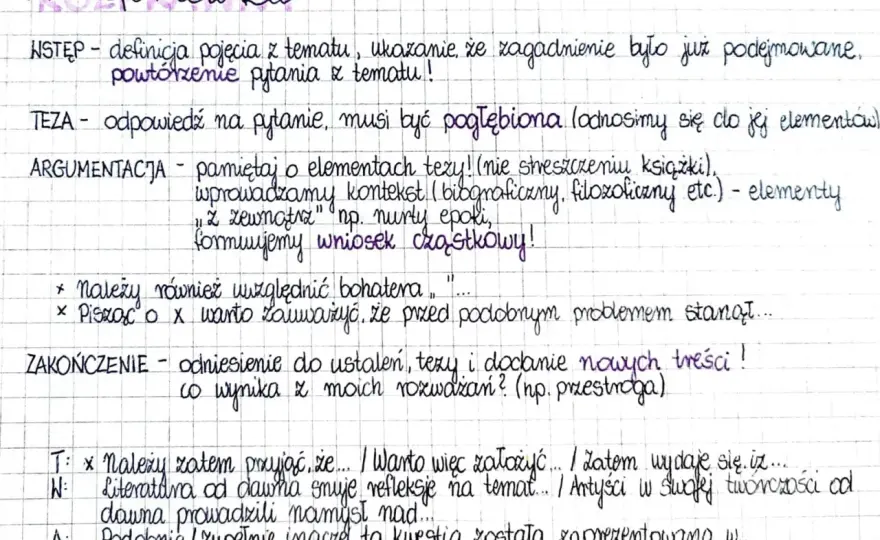 WSTĘP - definicja pojęcia z tematu, ukazanie, że zagadnienie było już podejmowane,
powtórzenie pytania z tematu!
TEZA - odpowiedź na pytanie, musi być pogłębiona (odnosimy się do jej elementów)
ARGUMENTACJA - pamiętaj o elementach tezy! (nie streszczeniu książki),
wprowadzamy kontekst (biograficzny, filozoficzny etc.) - elementy
„z zewnątrz" np. nurty epoki,
formuujemy wniosek cząstkowy!
* Należy również uwzględnić bohatera „ "...
* Pisząc o X warto zauważyć, że przed podobnym problemem stanął...
ZAKOŃCZENIE - odniesienie do ustaleń, tezy i dodanie nowych treści!
co wynika z moich rozważań? (np. przestroga)
T: * Należy zatem przyjąć, że... / Warto więc założyć... / Zatem wydaje się, iż...
W: Literatura od dawna snuje refleksje na temat... / Artyści w swojej twórczości od
dawna prowadzili namysł nad...
A: Podobnie / zupełnie inaczej ta kwestia została zaprezentowana w